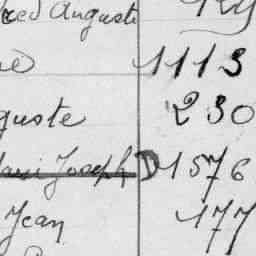 red Auguste
e 1113
guste 230
Joseph D 1576
Jean 177